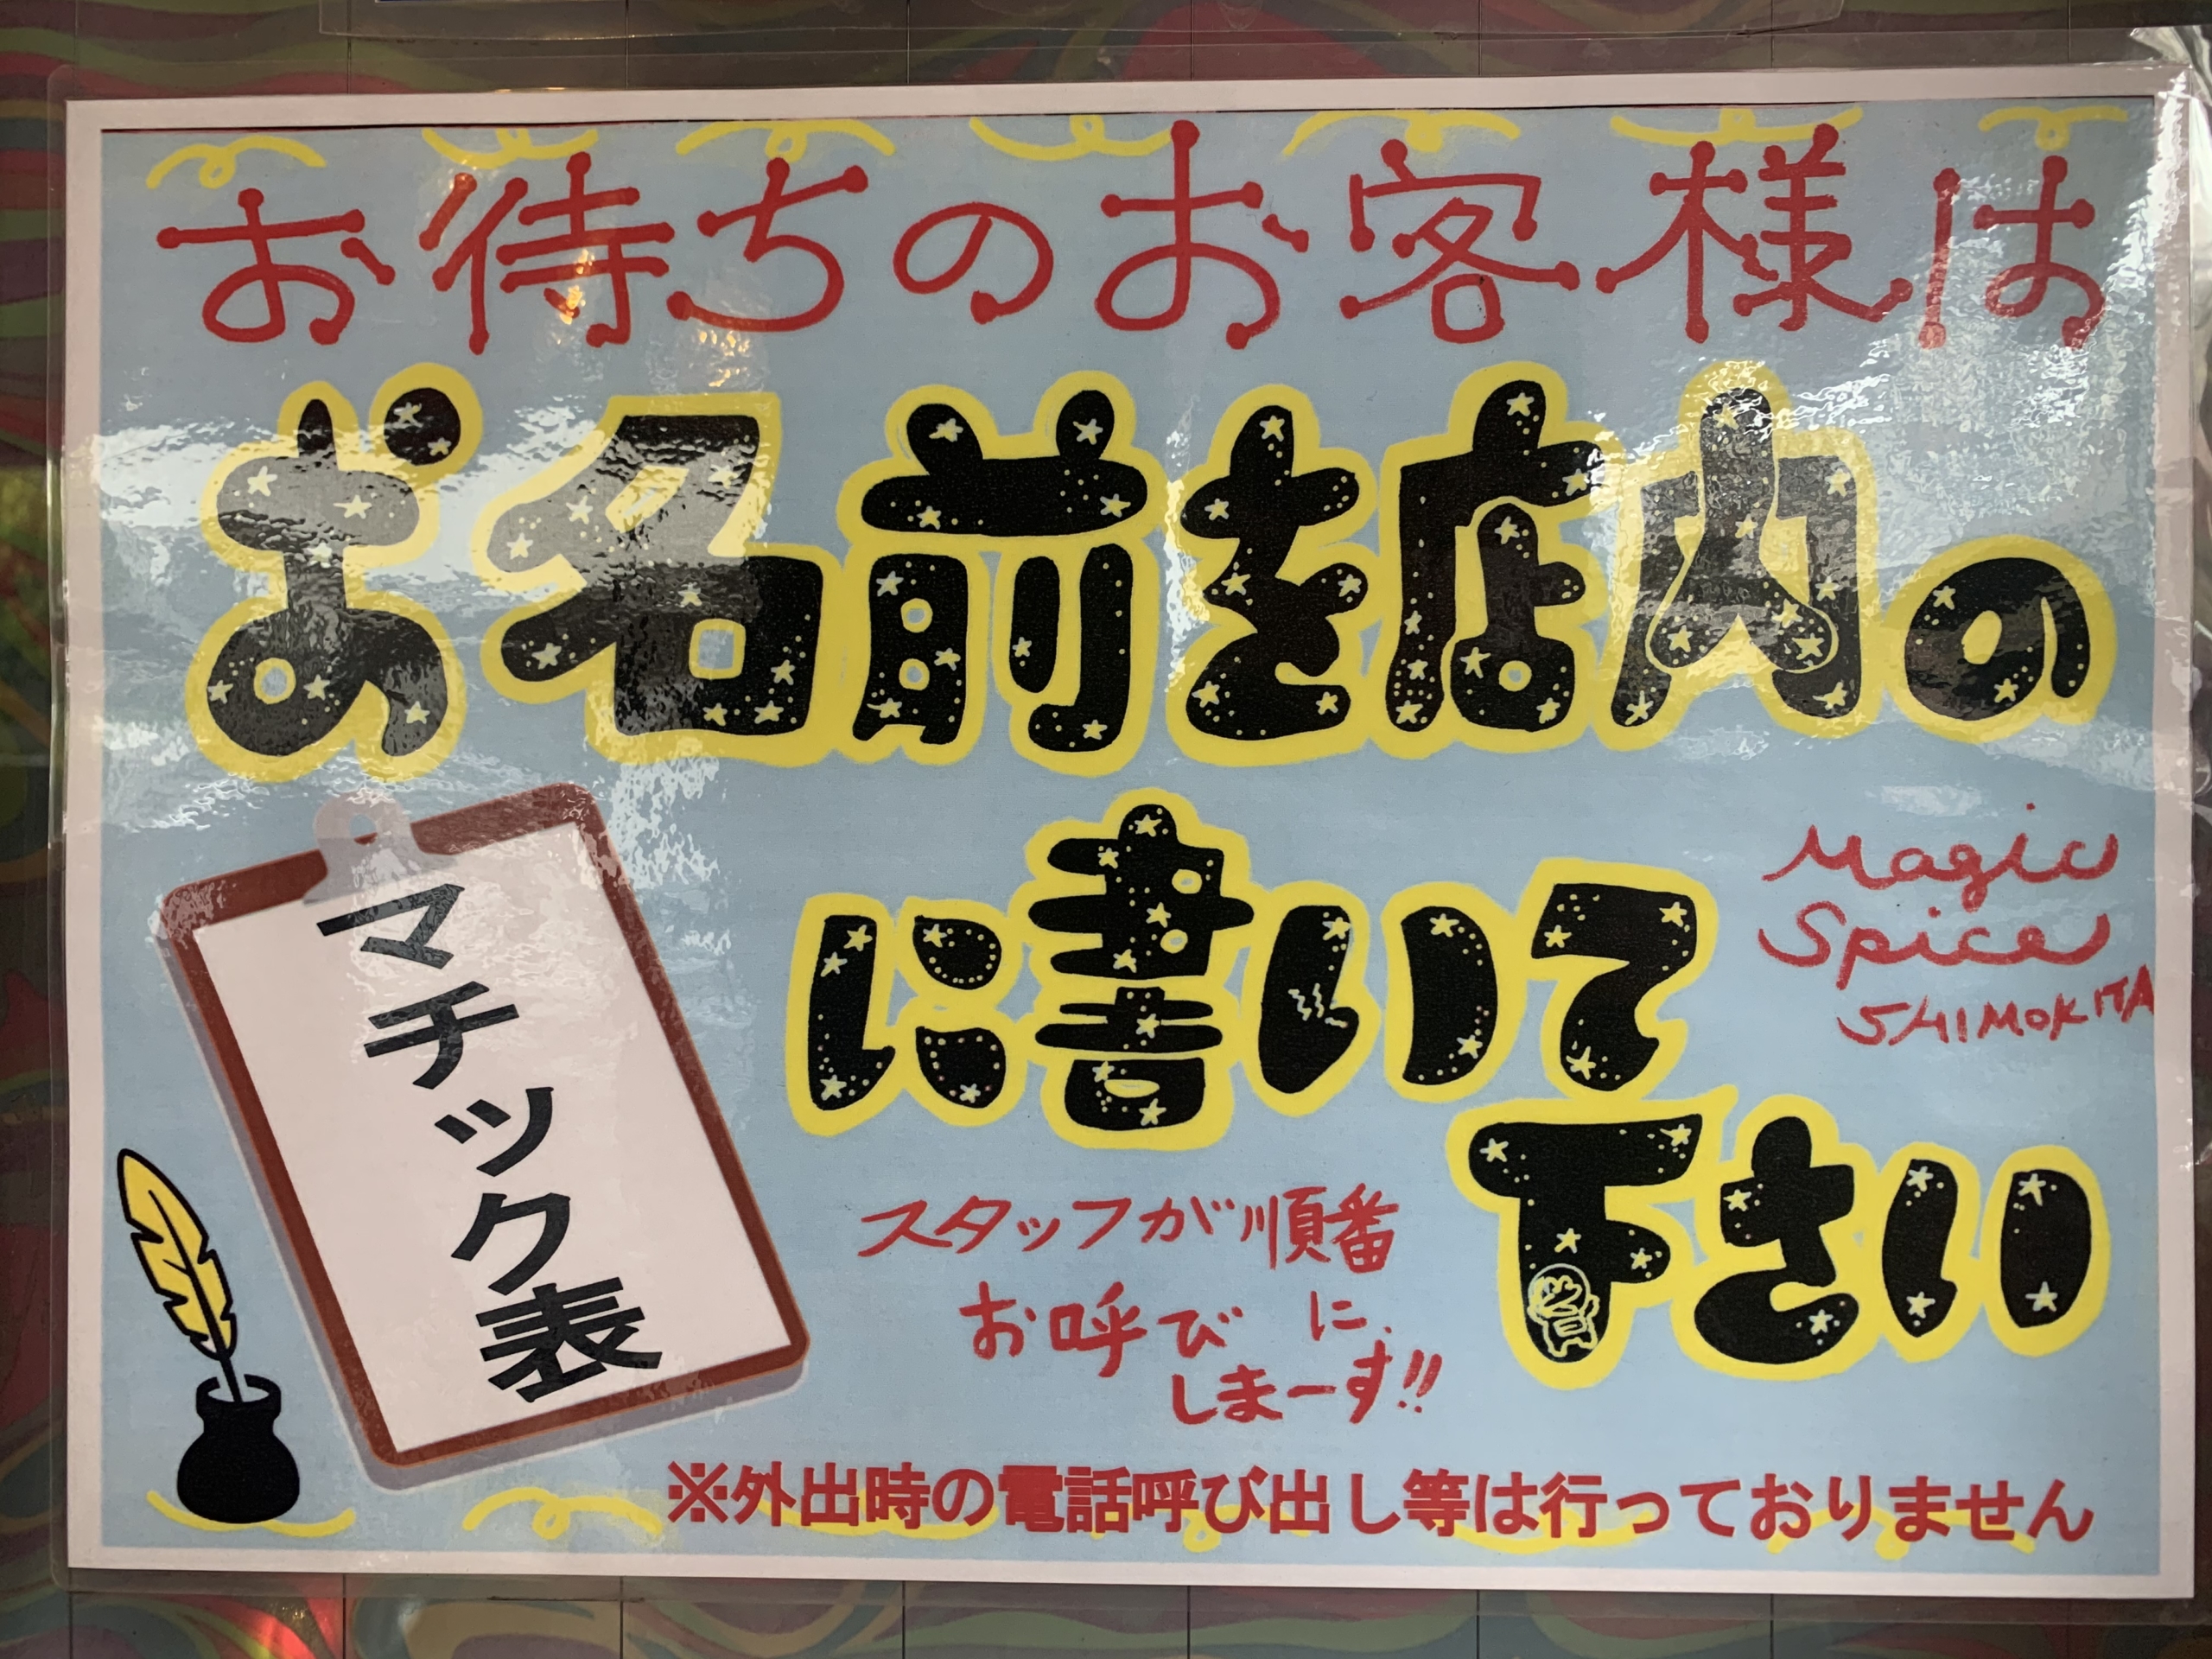 お待ちのお客様は
お名前を店内の
マチック表
に書いて
下さい
Magic
Spice
SHIMOKITA
スタッフが順番に
お呼び
しまーす!!
※外出時の電話呼び出し等は行っておりません